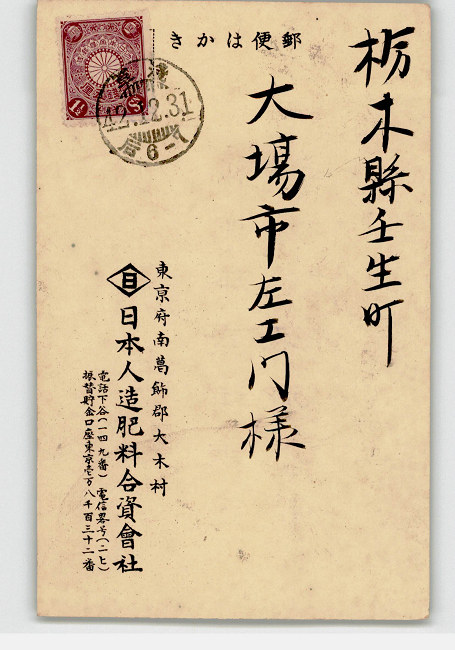 郵便はかき
栃木縣壬生町
大場市左エ门様
東京府南葛飾郡大木村
日
日本人造肥料合資會社
電話下谷(一四九番) 電信畧号(ニヒ)
振替貯金口座東京壱万八千百三十二番
42.12.31
6-7